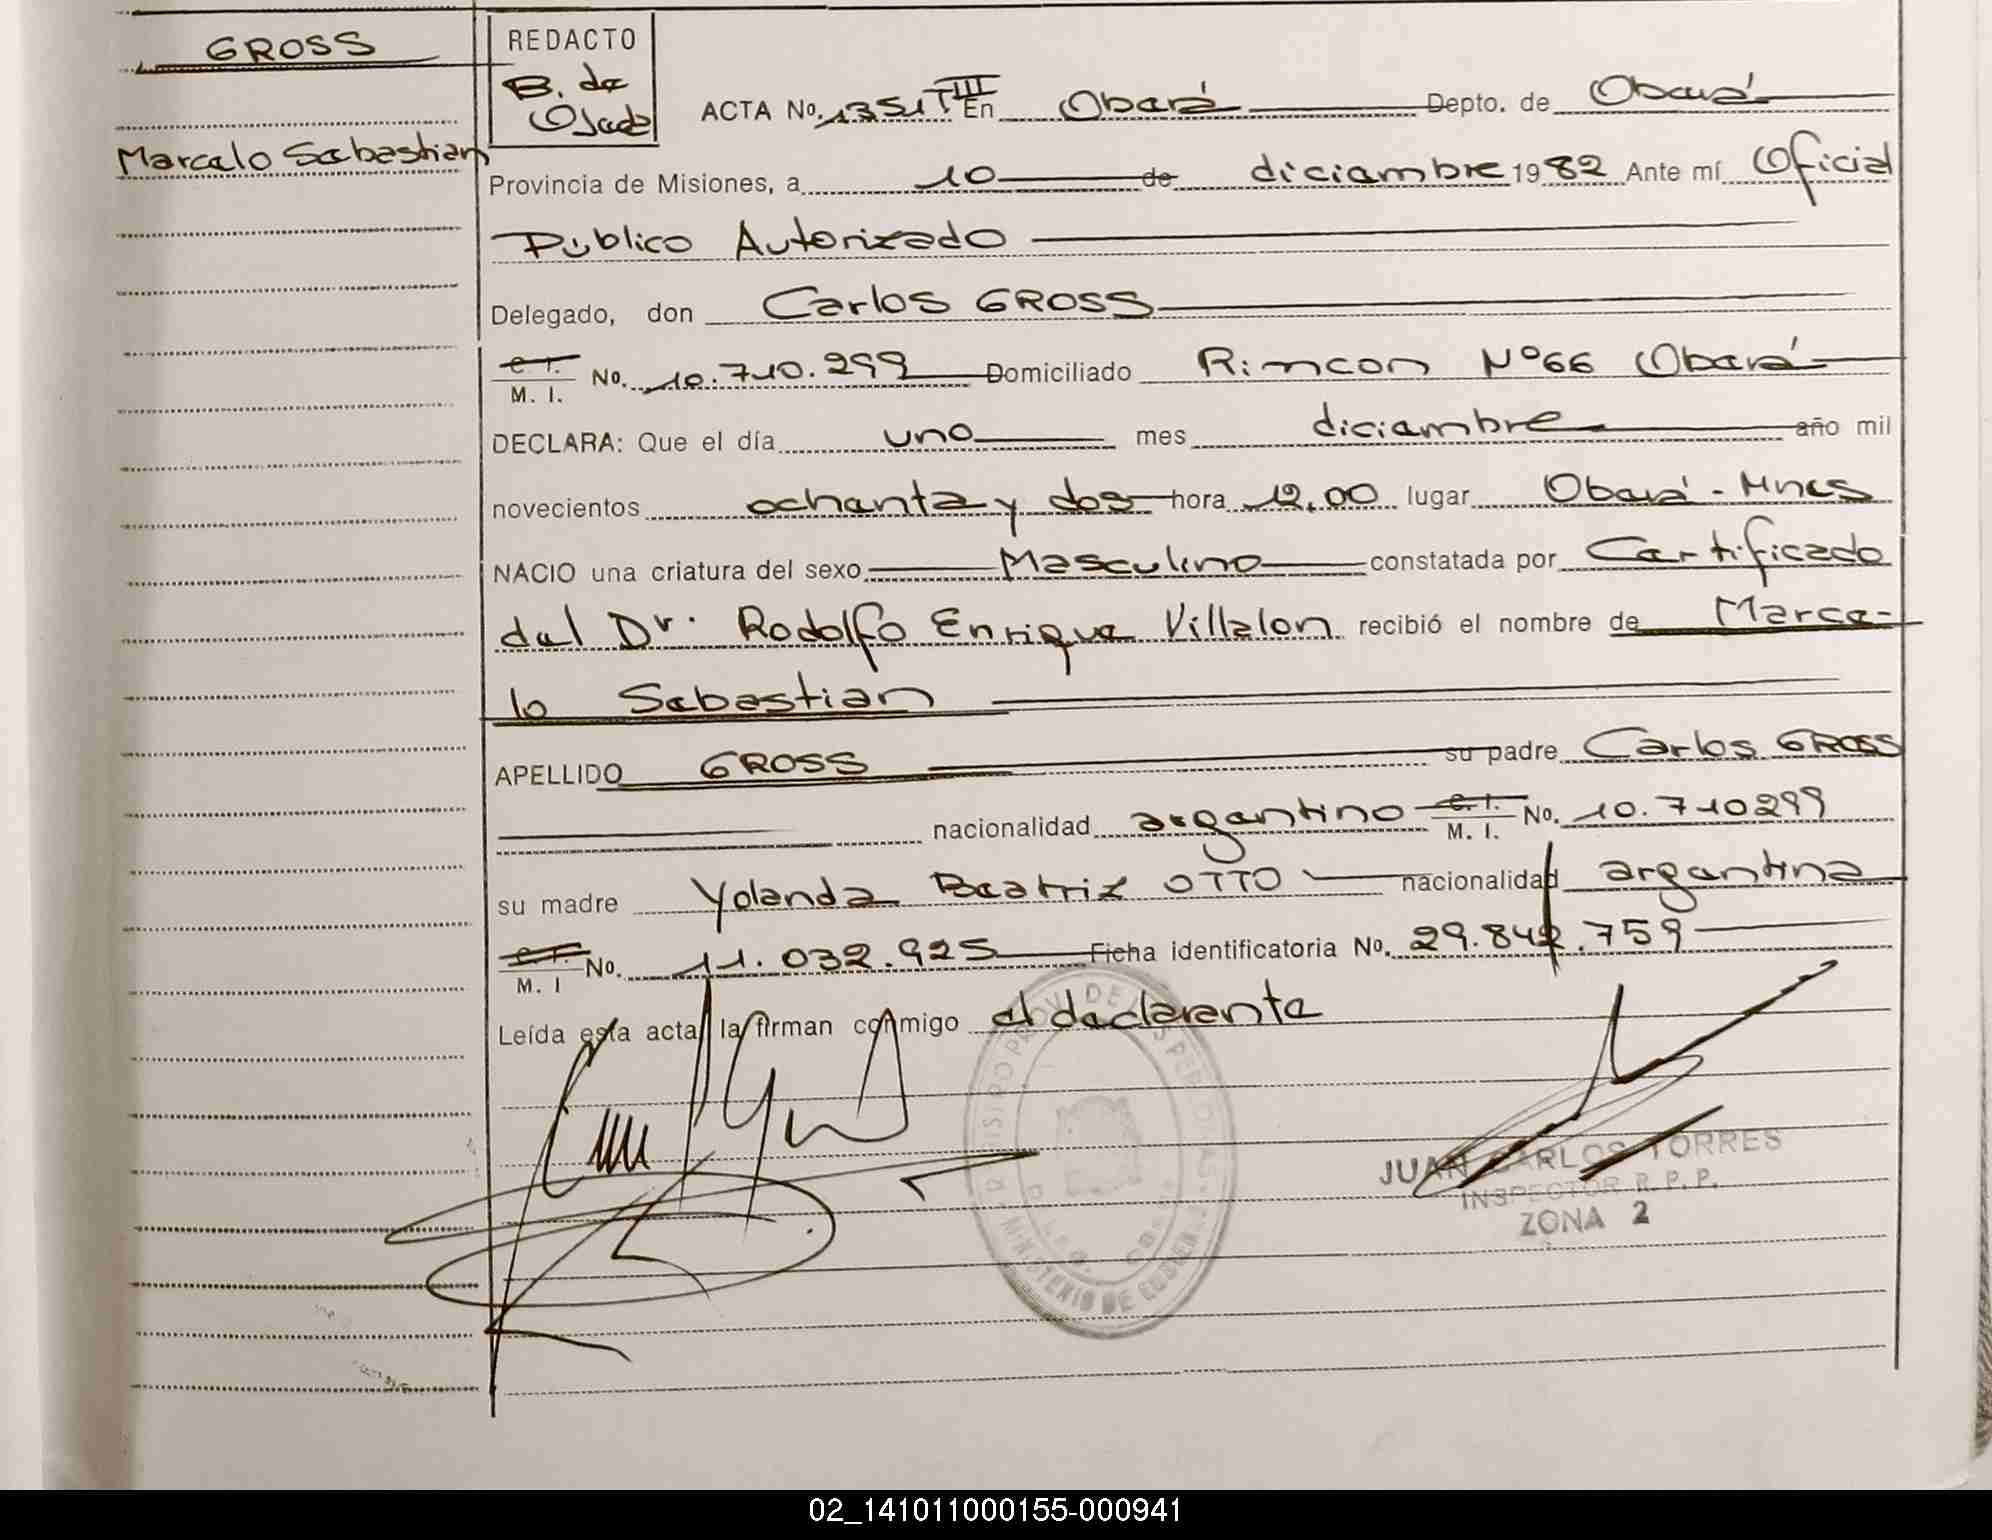 GROSS
Marcelo Sebastian
REDACTO
B. de
Ojeda
ACTA No. 1351 T°III En Oberá Depto. de Oberá
Provincia de Misiones, a 10 de diciembre 1982 Ante mí Oficial
Público Autorizado
Delegado, don Carlos GROSS
C. I. M. I. No. 10.710.299 Domiciliado Rincon N°66 Oberá
DECLARA: Que el día uno mes diciembre año mil
novecientos ochenta y dos hora 12,00 lugar Oberá - Mnes
NACIO una criatura del sexo Masculino constatada por Certificado
del Dr. Rodolfo Enrique Villalon recibió el nombre de Marce-
lo Sebastian
APELLIDO GROSS su padre Carlos GROSS
nacionalidad argentino C. I. M. I. No. 10.710299
su madre Yolanda Beatriz OTTO nacionalidad argentina
C. I. M. I No. 11.032.925 Ficha identificatoria No. 29.842.759
Leída esta acta, la firman conmigo el declarante
JUAN CARLOS TORRES
INSPECTOR R. P. P.
ZONA 2
MINISTERIO DE
02_141011000155-000941